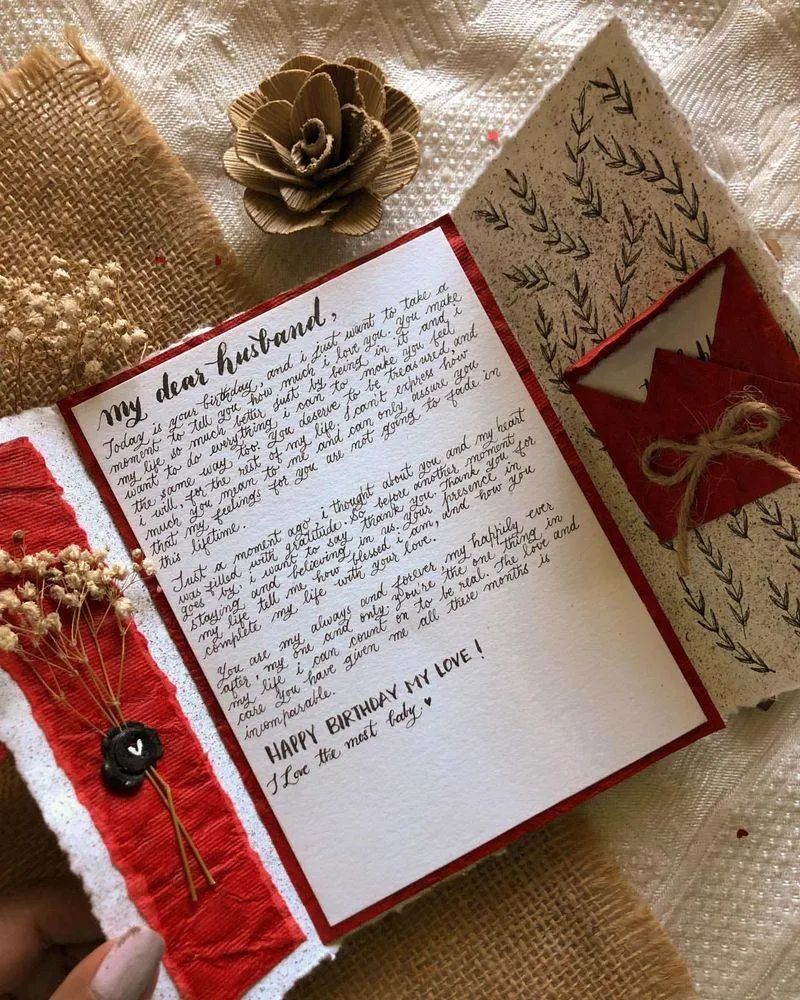 my dear husband,
Today is your birthday, and i just want to take a
moment to tell you how much i love you. You make
my life so much better just by being in it and i
want to do everything i can to make you feel
the same way too. You deserve to be treasured, and
i will, for the rest of my life. I can't express how
much you mean to me and can only assure you
that my feelings for you are not going to fade in
this lifetime.
Just a moment ago, i thought about you and my heart
was filled with gratitude. So before another moment
goes by i want to say thank you. Thank you for
staying and believing in us. Your presence in
my life tell me how blessed i am, and how you
complete my life with your love.
You are my always and forever, my happily ever
after, my one and only. You're the one thing in
my life i can count on to be real. The love and
care you have given me all these months is
incomparable.
HAPPY BIRTHDAY MY LOVE!
I Love the most baby